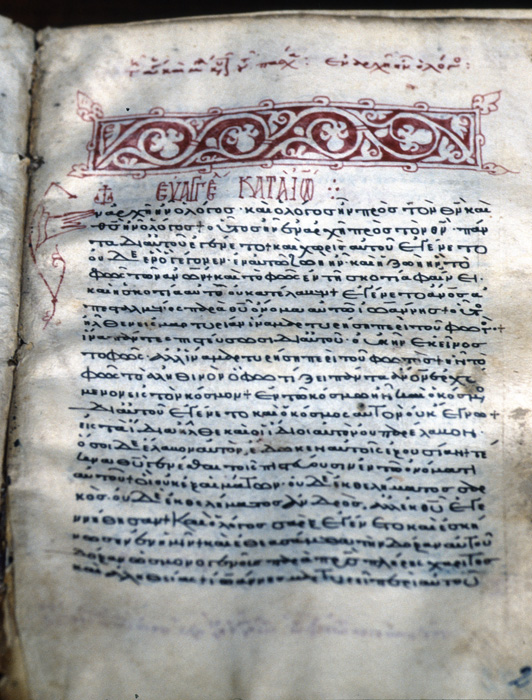 Ἐν ἀρχῇ ἦν ὁ λόγο:
ΕΥΑΓΓΕ ΚΑΤΑ ΙΩ
ν ἀρχῇ ἦν ὁ λόγος· καὶ ὁ λόγος ἦν πρὸς τὸν θν καὶ
θς ἦν ὁ λόγος + οὗτος ἦν ἐν ἀρχῇ πρὸς τὸν θν· παν
τα δι αὐτοῦ ἐγένετο + καὶ χωρὶς αὐτοῦ ἐγένετο
οὐδὲ ἓν ὃ γέγονεν· ἐν αὐτῷ ζωὴ ἦν· καὶ ἡ ζωὴ ἦν τὸ
φῶς τῶν ἀνων + καὶ τὸ φῶς ἐν τῇ σκοτίᾳ φαίνει·
καὶ ἡ σκοτία αὐτὸ οὐ κατέλαβεν + ἐγένετο ἄνος ἀ
πεσταλμένος παρὰ θυ ὄνομα αὐτῷ ἰωάννης + οὗτος
ἦλθεν εἰς μαρτυρίαν ἵνα μαρτυρήσῃ περὶ τοῦ φωτός +
ἵνα πάντες πιστεύσωσι δι αὐτοῦ· οὐκ ἦν ἐκεῖνος
τὸ φῶς· ἀλλ ἵνα μαρτυρήσῃ περὶ τοῦ φωτός + ἦν τὸ
φῶς τὸ ἀληθινὸν ὃ φωτίζει πάντα ἄνον ἐρχό
μενον εἰς τὸν κόσμον + ἐν τῷ κόσμῳ ἦν καὶ ὁ κόσμος
δι αὐτοῦ ἐγένετο καὶ ὁ κόσμος αὐτὸν οὐκ ἔγνω +
εἰς τὰ ἴδια ἦλθε καὶ οἱ ἴδιοι αὐτὸν οὐ παρέλαβον·
ὅσοι δὲ ἔλαβον αὐτόν, ἔδωκεν αὐτοῖς ἐξουσίαν τέ
κνα θυ γενέσθαι τοῖς πιστεύουσιν εἰς τὸ ὄνομα
αὐτοῦ + οἳ οὐκ ἐξ αἱμάτων· οὐδὲ ἐκ θελήματος σαρ
κός· οὐδὲ ἐκ θελήματος ἀνδρός, ἀλλ ἐκ θυ ἐγε
ννήθησαν + Καὶ ὁ λόγος σὰρξ ἐγένετο καὶ ἐσκή
νωσεν ἐν ἡμῖν καὶ ἐθεασάμεθα τὴν δόξαν αὐτοῦ
δόξαν ὡς μονογενοῦς παρὰ πρς πλήρης χάριτος
καὶ ἀληθείας + ἰωάννης μαρτυρεῖ περὶ αὐτοῦ